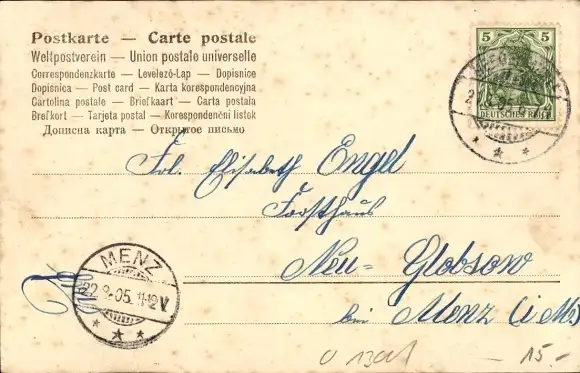 Postkarte — Carte postale
Weltpostverein — Union postale universelle
Correspondenzkarte — Levelező-Lap — Dopisnice
Dopisnica — Post card — Karta korespondencyjna
Cartolina postale — Briefkaart — Carta postala
Brefkort — Tarjeta postal — Korespondenční listek
Дописна карта — Открытое письмо
5 5
DEUTSCHES REICH
Frl. Elisabeth Engel
Forsthaus
Neu-Globsow
bei Menz (i M.)
MENZ
22.8.05. 11-12 V.
15.-